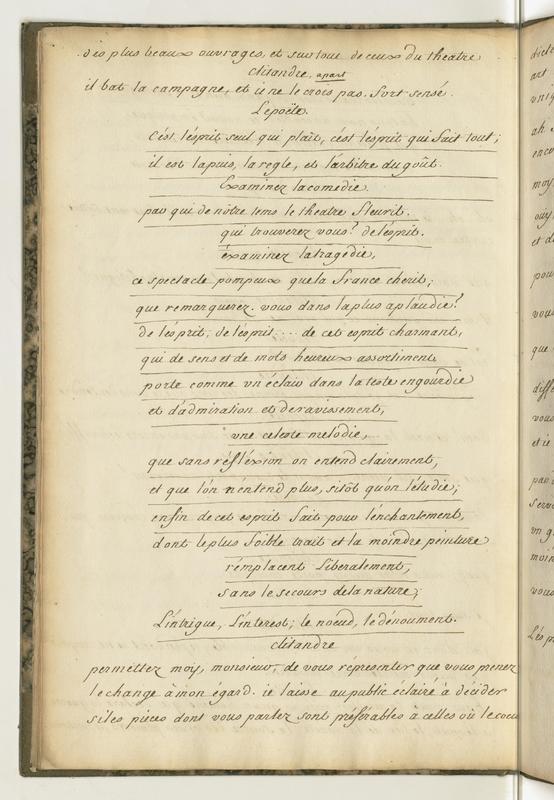 des plus beaux ouvrages, et surtout de ceux du theatre
clitandre, apart
il bat la campagne, et je ne le crois pas. fort sensé.
Le poëte.
C'est l'ésprit seul qui plaît, c'est l'ésprit qui fait tout;
il est lapuis, la regle, et l'arbitre du goût.
Examinez la comedie
par qui de nôtre tems le theatre fleurit.
qui trouverez vous? de l'esprit.
éxaminez la tragedie,
ce spectacle pompeux que la france cherit;
que remarquerez-vous dans la plus aplaudie?
de l'ésprit, de l'ésprit.... de cet esprit charmant,
qui de sens et de mots heureux assortiment
porte comme un éclair dans la teste engourdie
et d'admiration et de ravissement,
une celeste melodie,
que sans réfléxion on entend clairement,
et que l'on n'entend plus, sitôt qu'on l'étudie;
enfin de cet esprit fait pour l'énchantement,
dont le plus foible trait et la moindre peinture
remplacent liberalement,
sans le secours de la nature;
L'intrigue, L'interest; le nœud, le dénoument.
clitandre
permettez moy, monsieur, de vous répresenter que vous prenez
le change à mon égard. je laisse au public éclairé à décider
si les pieces dont vous parlez sont préférables à celles où le coeur